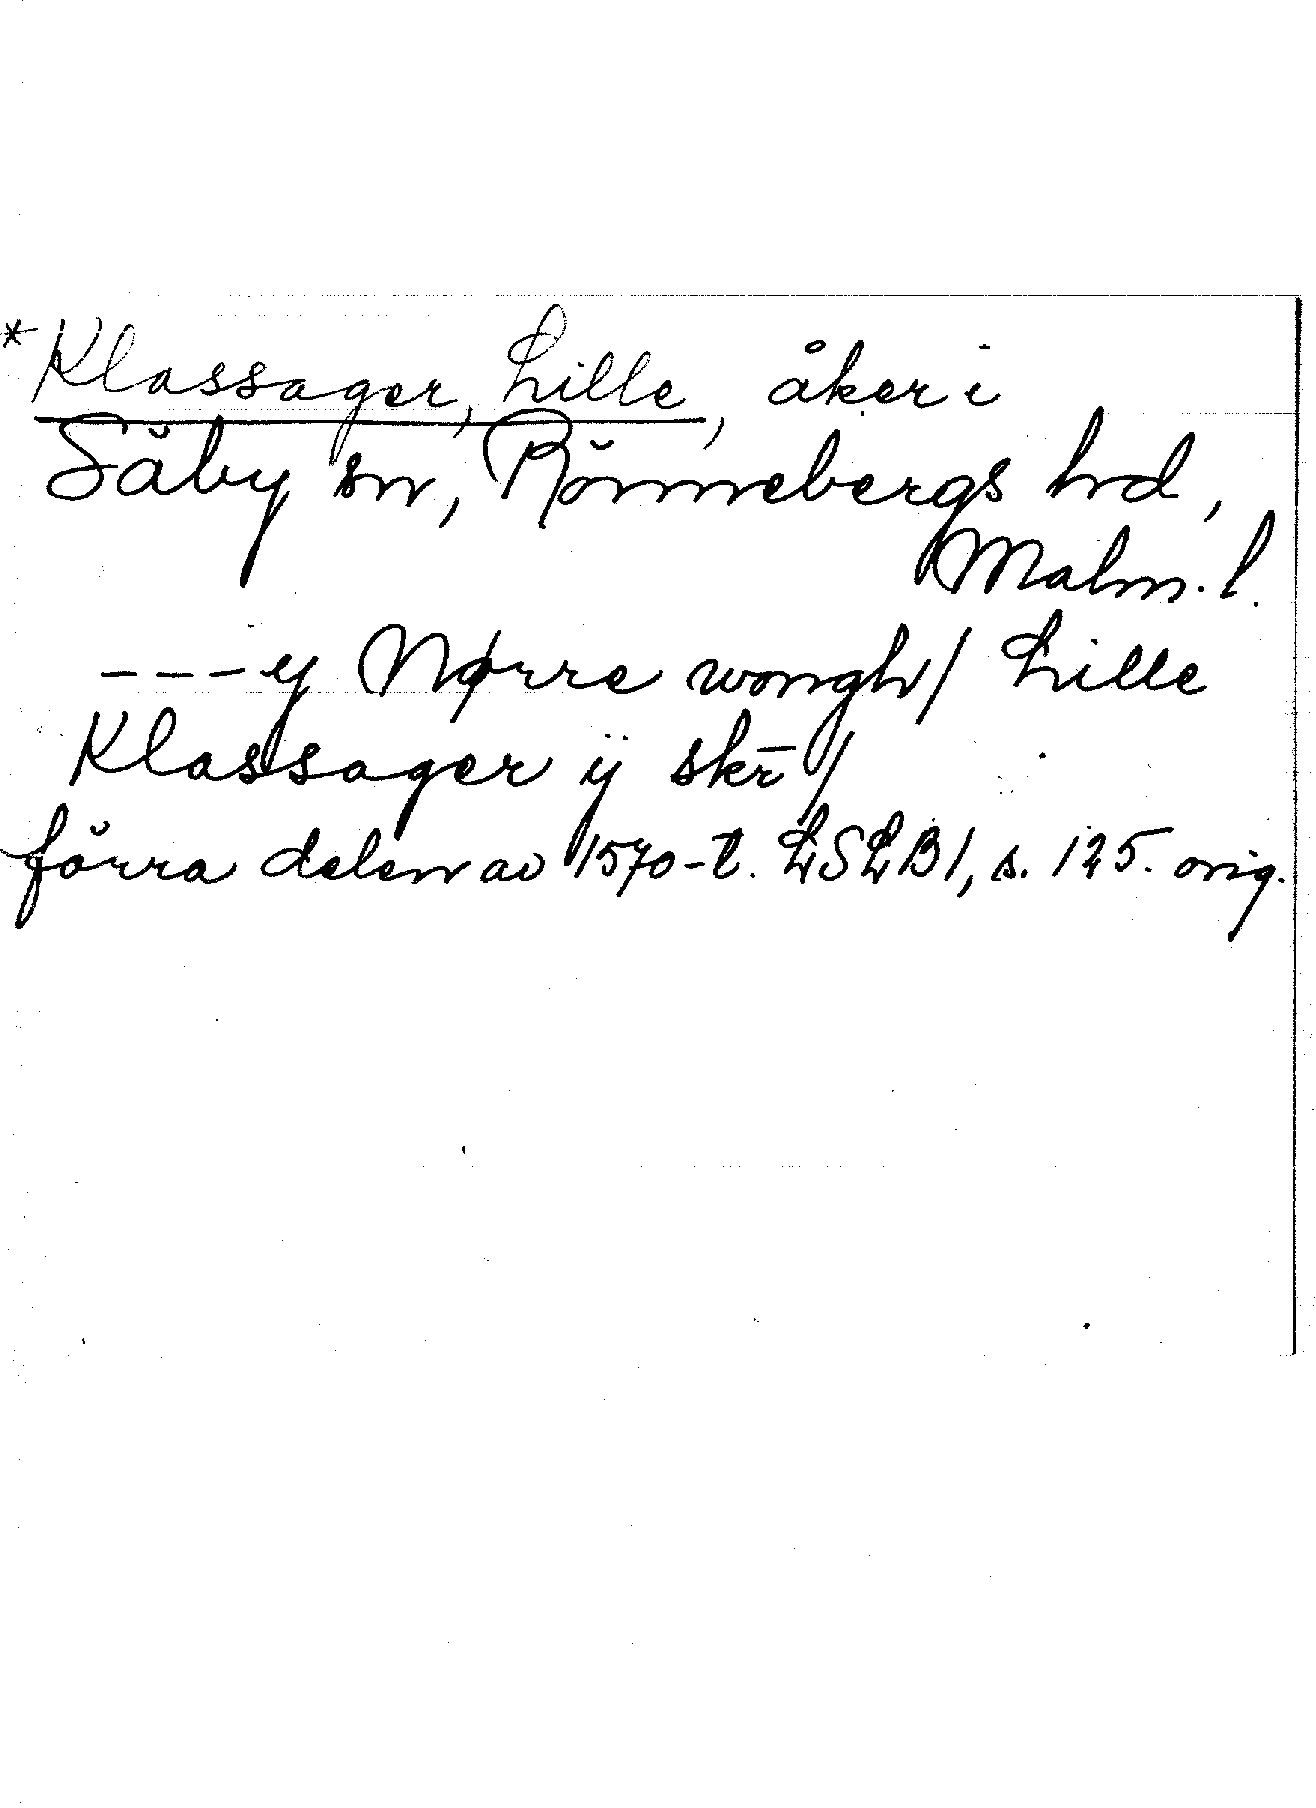 *Klassager, Lille, åker i
Säby sn, Rönnebergs hd,
Malm. l.
---y Nørre wongh/ Lille
Klassager ÿ skr̄/
förra delen av 1570-t. LSLB1, s. 125. orig.